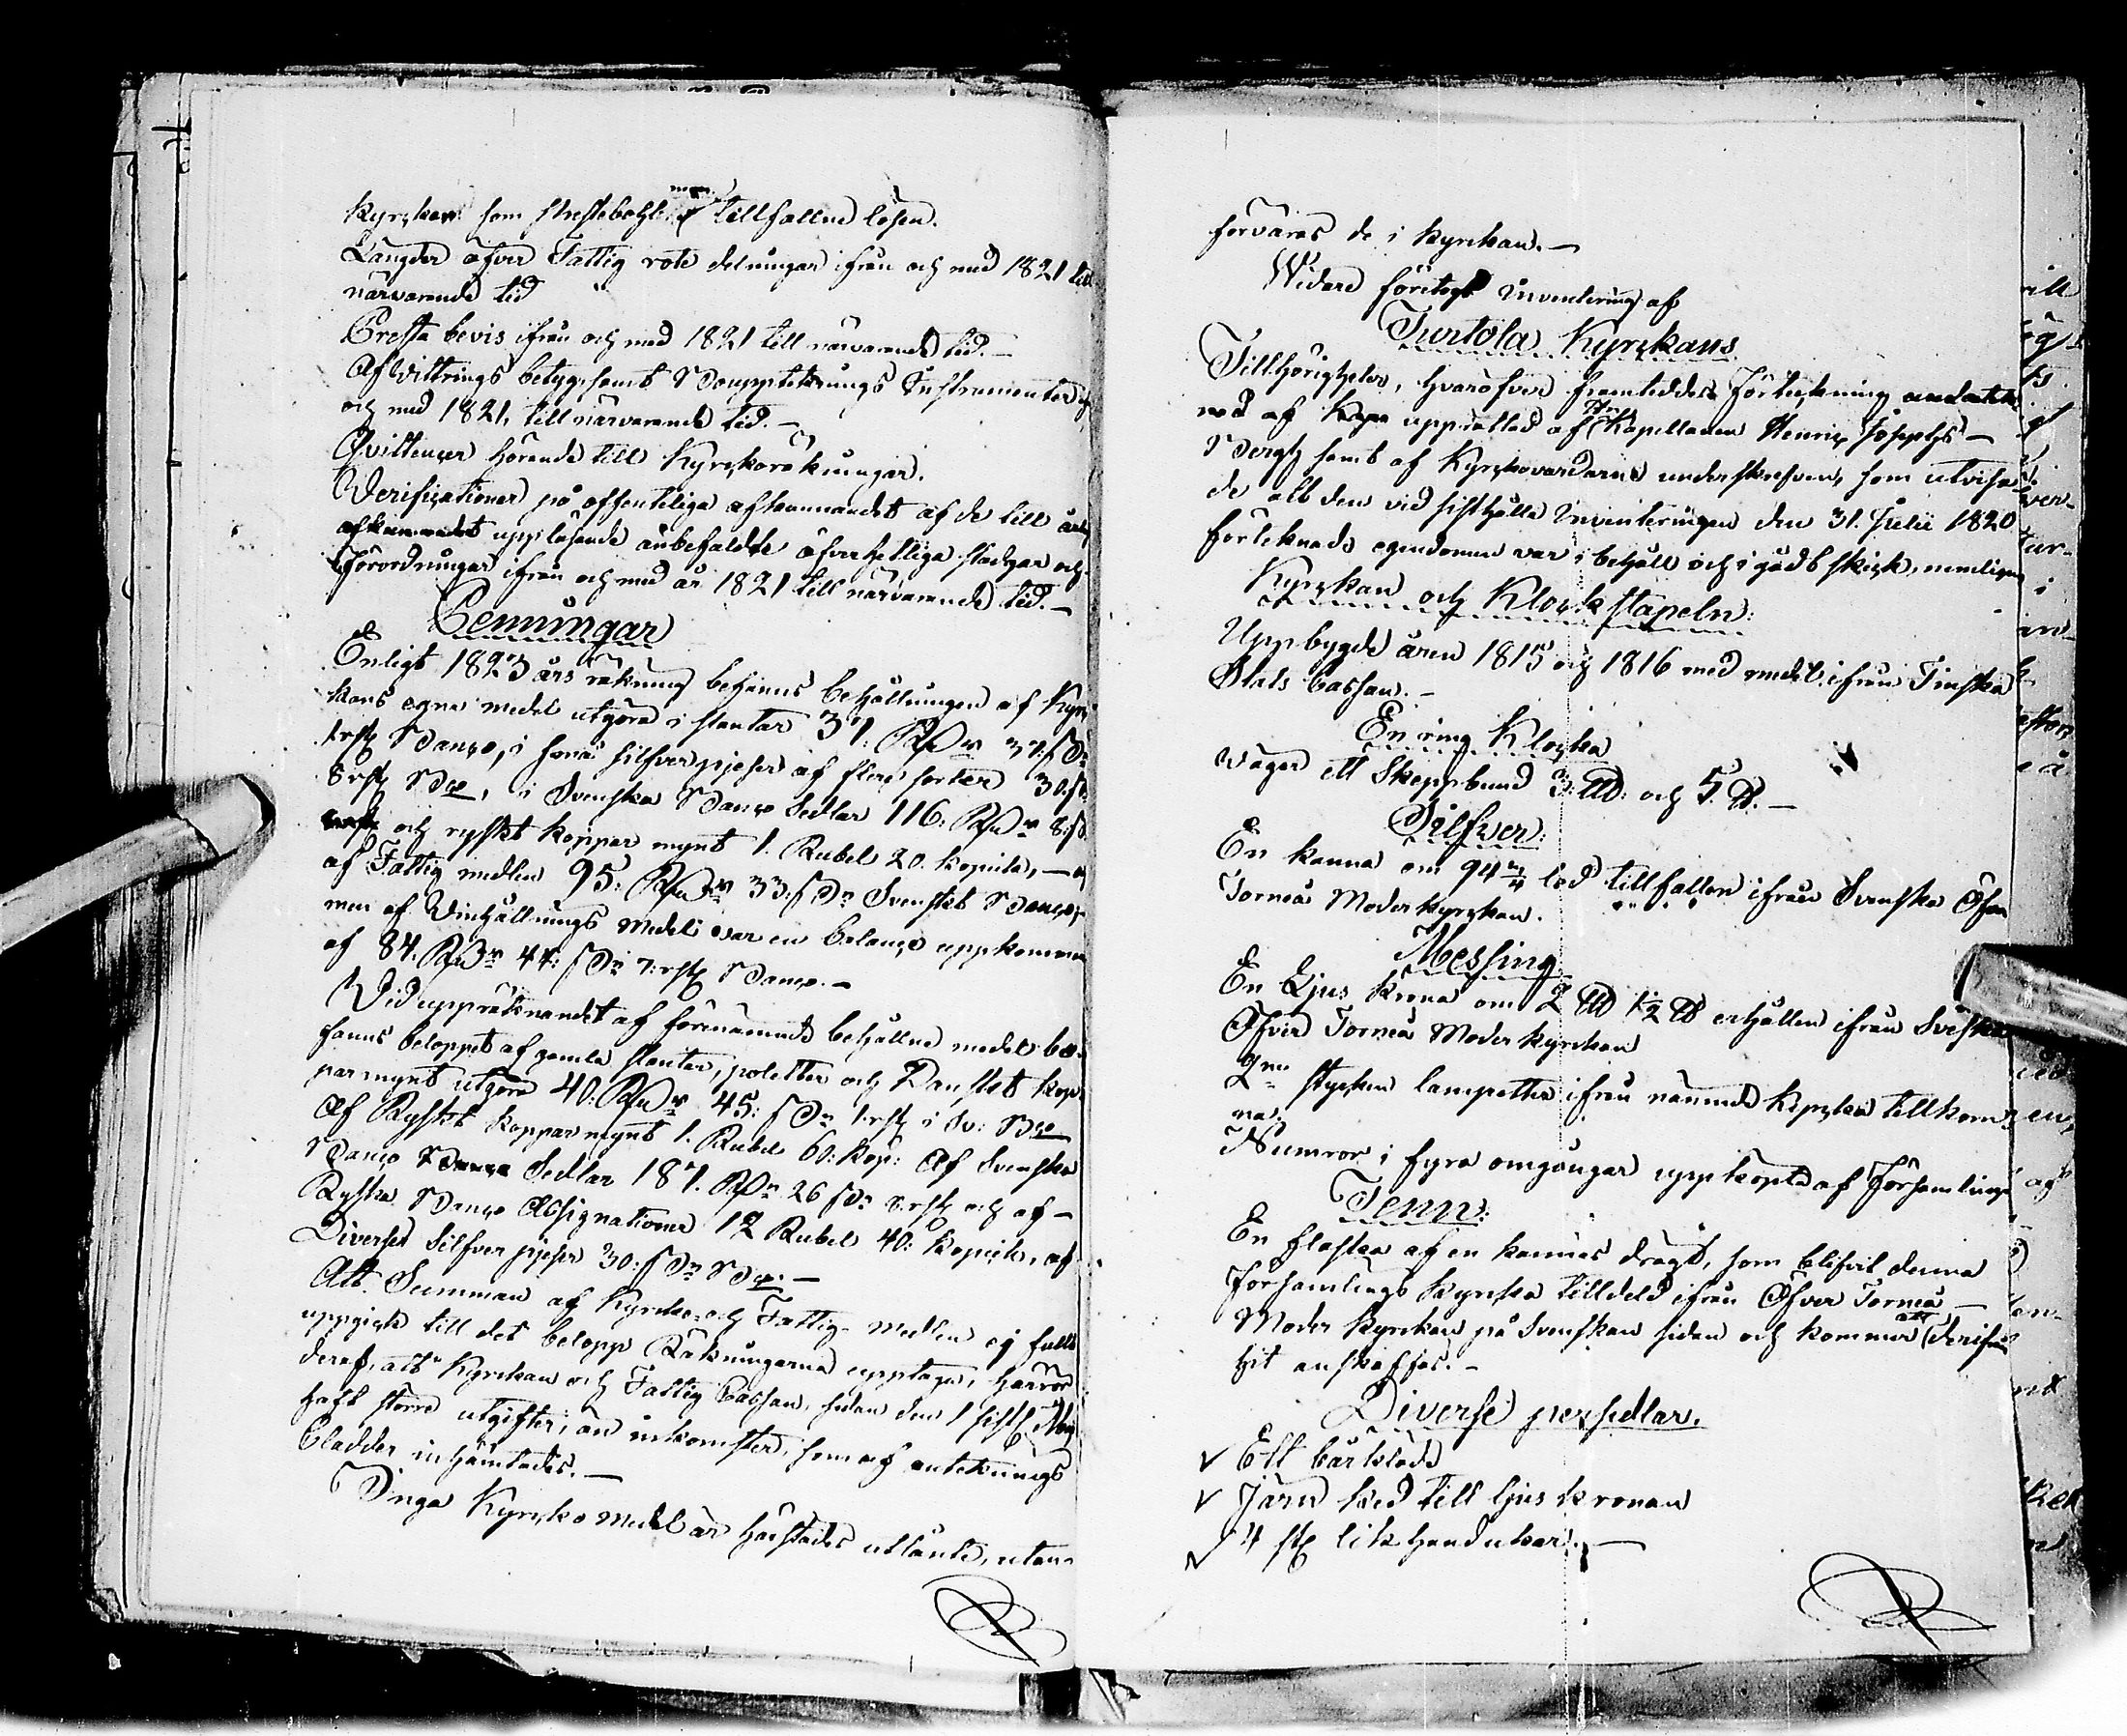 Kyrckan som tillfallne lösen.
Längder öfver Fattig rote delningar ifrån och med 1821 till
närvarande tid
Bresta bevis ifrån och med 1821 till närvarande tid. –
Af Vittrings betyg, samt Instrumenter
och med 1821, till närvarande tid. –
Qvittencer hörande till Kyrckoräkningar.
Verificationer på offenteliga afkunnandet af de till
uppläsande anbefaldte öfverhetliga stadgar och
Förordningar ifrån och med år 1821 till närvarande tid. –
Penningar
Enligt 1823 års räkning befanns behållningen af Kyrc
kans egna medel utgöra i slantar 37. RD 37. s
1. rst Banco, i hona silfver pjeser af flere sorter 30. s
8 rst Bco, i Svenska Banco Sedlar 116: RD 8: s
och ryskt koppar mynt 1. Rubel 20. kopeik, –
af Fattig medlen 95: RD 33. s Svenskt Banco,
men af Vinhållnings medel var en balance uppkommen
af 84. RD 44: s 7: rst Banco. –
Vid uppräknandet af förenämnde behållne medel be-
fanns beloppet af gamla slantar, poletter och Danskt kop-
par mynt utgöra 40: RD 45: s 1. rst i Sv: Bco
Af Ryskt koppar mynt 1. Rubel 60: kop: Af Svenska
Banco Sedlar 187. RD 26 s 8. rst och af –
Ryska Banco Assignationer 12 Rubel 40: Kopeik, af
Diverse silfver pjeser 30: s Bco. –
Att Summan af Kyrko- och Fattig- medlen ej fullt
uppgick till det belopp Räkningarna upptaga, härrör
deraf, att Kyrckan och Fattig Cassan, sedan den 1 sistl. Maj
haft större utgifter, än inkomster, som af antecknings
bladder inhämtades. –
Inga Kyrcko medel är härstädes utlånte, utan
förvaras de i Kyrckan. –
Widare företogs Inventering af
Turtola Kyrckans
Tillhörigheter, hvaröfver framteddes Förteckning
ned af upprättad af Hr Kapellanen Henric Josephs –
Bergh samt af Kyrckovärdarne underskrefven, som utvisa-
de att den vid sisthålla Inventeringen den 31. Julii 1820
förteknade egendomen var i behåll och i godt skick, nemligen
Kyrckan och Klockstapeln:
Uppbygde åren 1815 och 1816 med medel ifrån Finska
Stats Cassan. –
En ring Klocka
Wäger ett Skeppbund 3. LU: och 5. U. –
Silfwer:
En kanna om 94 3/4 lod tillfallen ifrån Svenska Öfver
Torneå Moderkyrckan.
Messing
En Ljus krona om 2 LU 1/2 U erhållen ifrån Svenska
Öfver Torneå Moder kyrckan
2ne stycken lampetter ifrån nämnde Kyrcka tillkom-
na;
Numror i fyra omgångar uppköpta af Församlingen
Tenn:
En flaska af en kannas drägt, som blifvit denna
Församlings Kyrcka tilldeld ifrån Öfver Torneå –
Moder Kyrckan på Svenskan sidan och kommer att derifrån
hit anskaffas. –
Diverse persedlar.
√ Ett bårkläde
√ Järn ked till ljus kronan
√ 4 st lik handukar. –